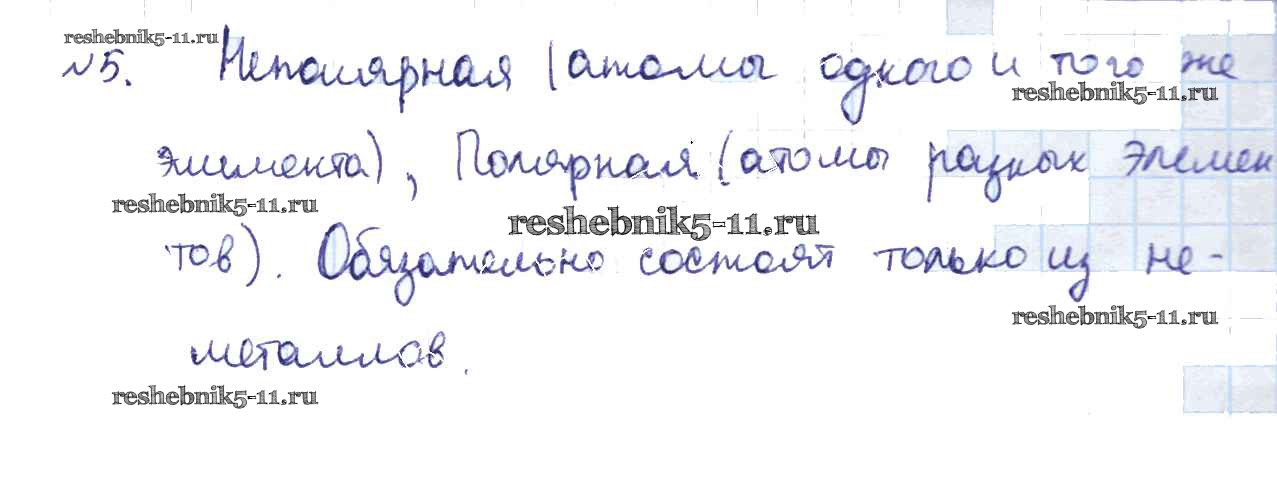 reshebnik5-11.ru
№5. Неполярная (атомы одного и того же
reshebnik5-11.ru
элемента), Полярная (атомы разных элемен
reshebnik5-11.ru
reshebnik5-11.ru
тов). Обязательно состоят только из не-
reshebnik5-11.ru
металлов.
reshebnik5-11.ru